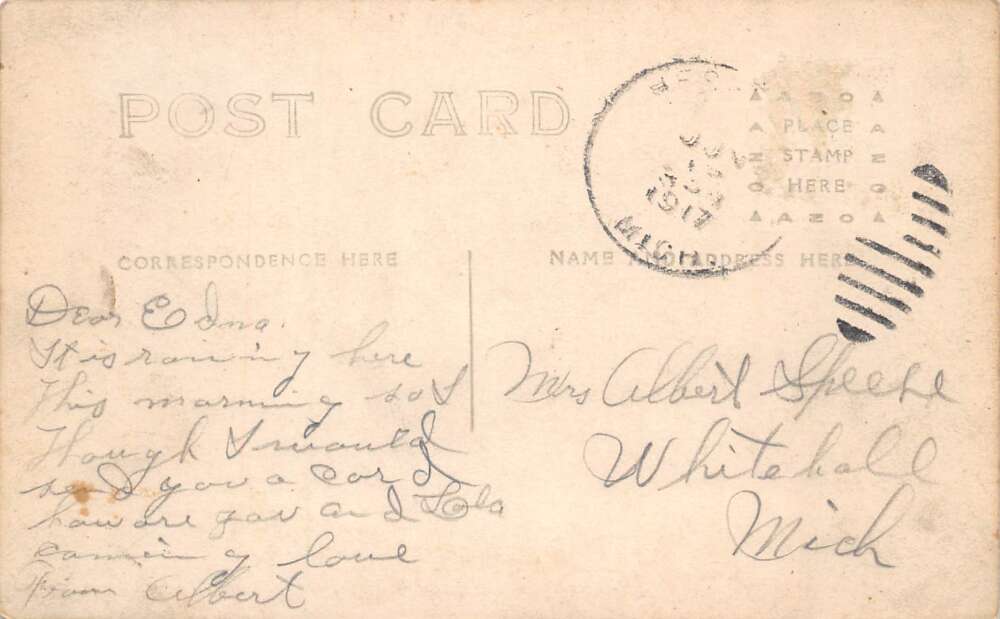 POST CARD
MICH.
1917
AZO
PLACE
STAMP
HERE
AZO
CORRESPONDENCE HERE
NAME AND ADDRESS HERE
Dear Edna.
It is raining here
this morning so I
though I would
send you a card
how are you and Lola
comming love
From Albert
Mrs Albert
Whitehall
Mich